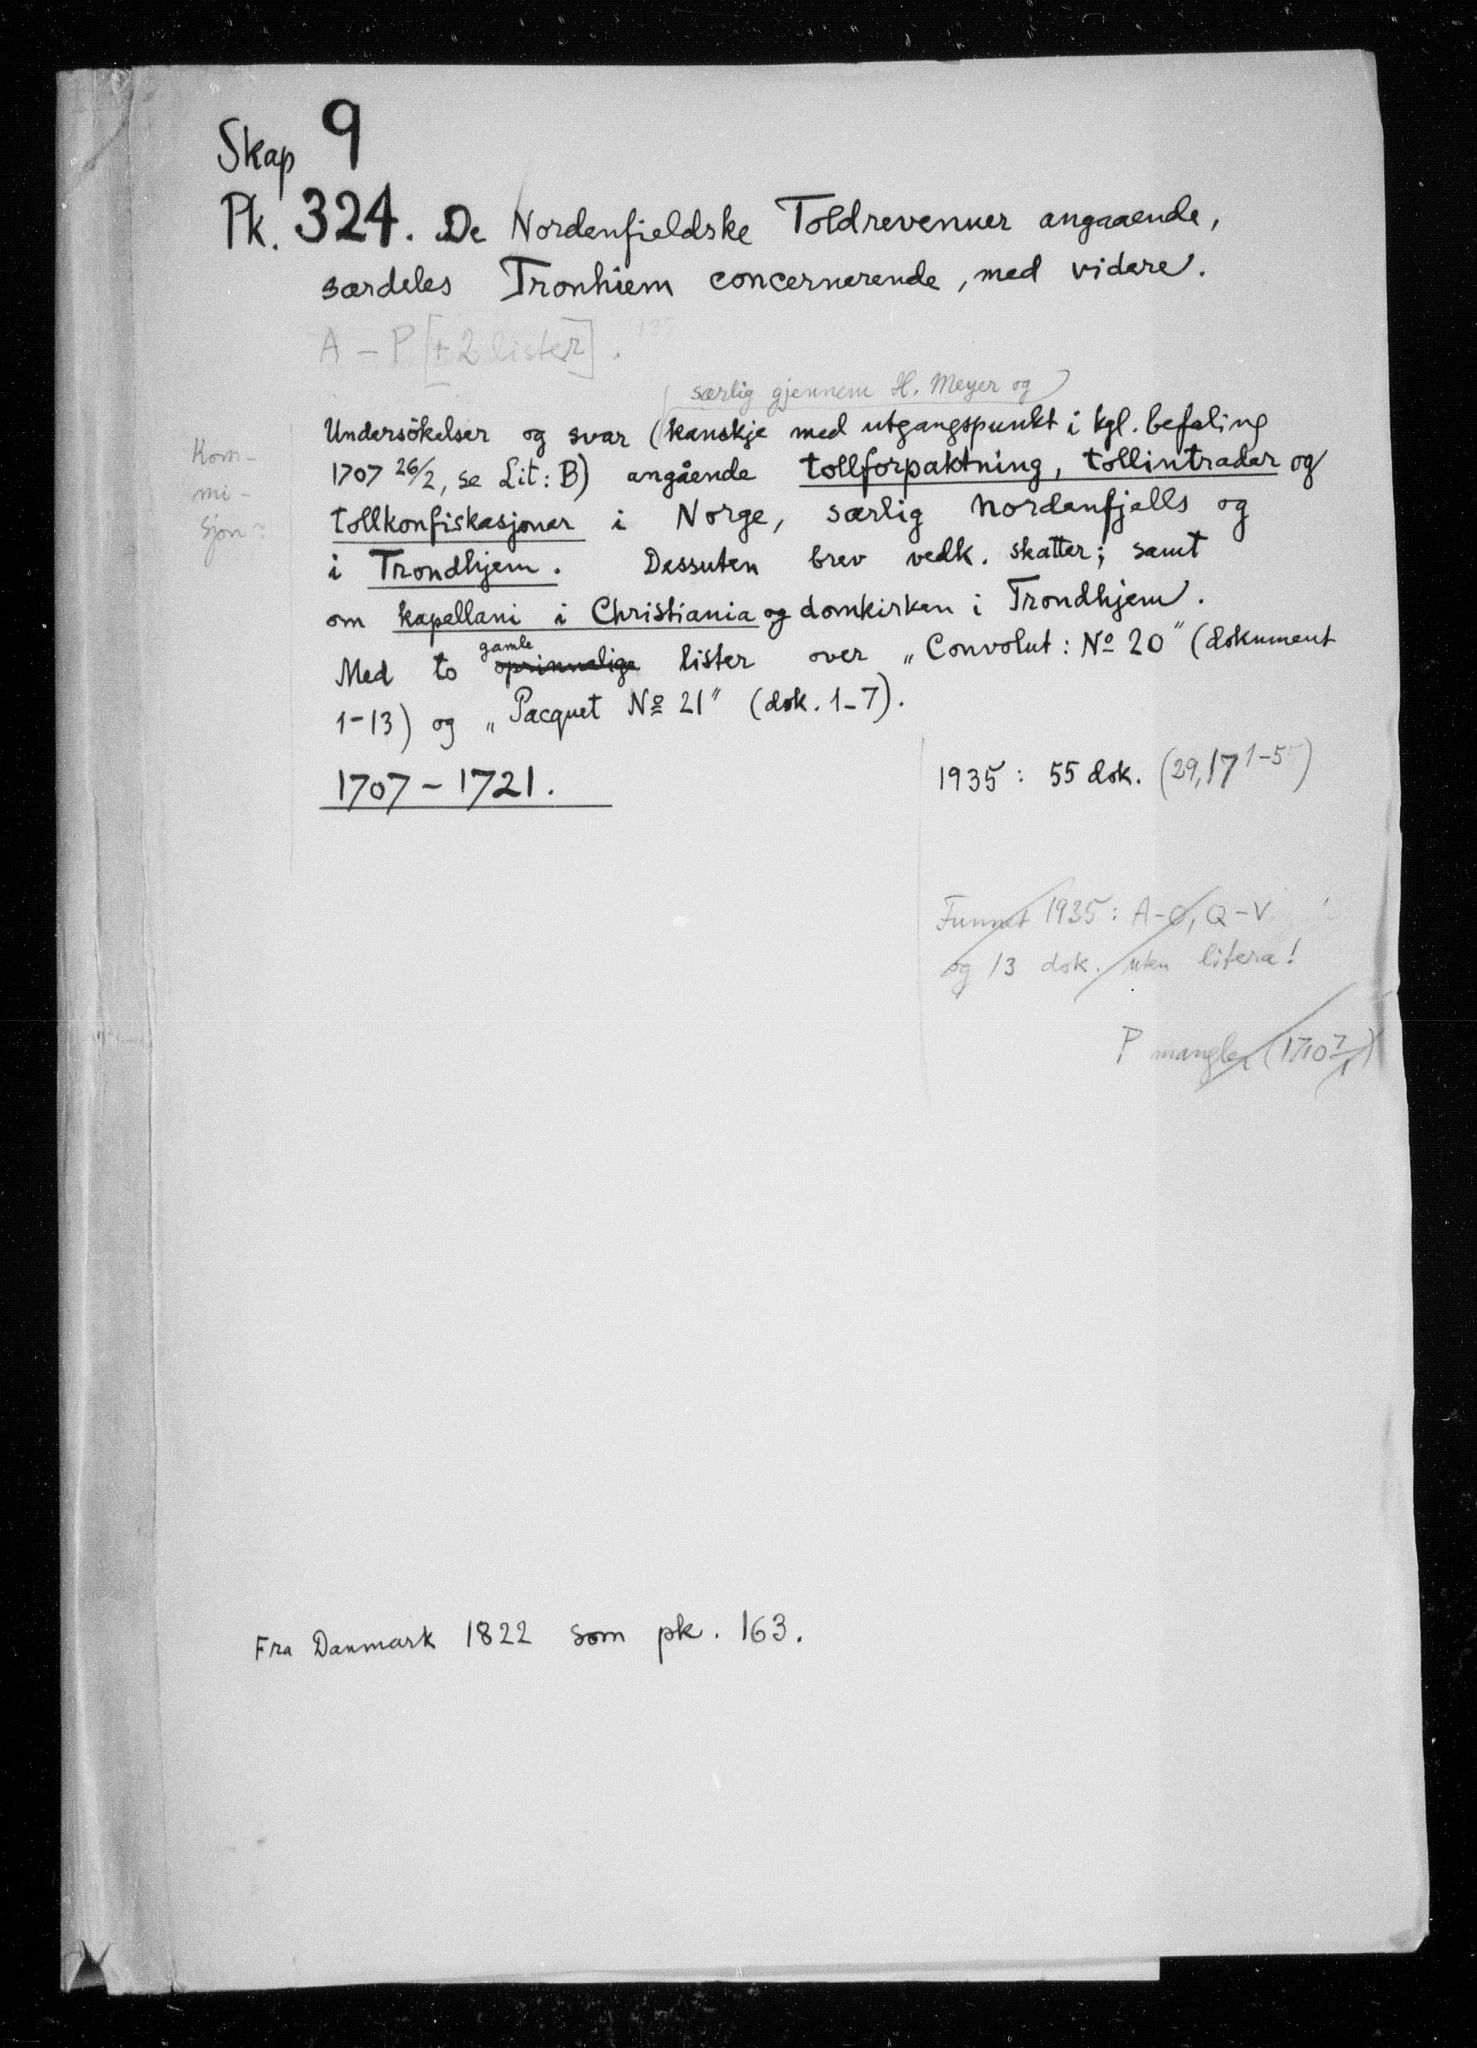 Skap 9
Pk. 324. De Nordenfieldske Toldrevenuer angaaende,
særdeles Tronhiem concernerende, med videre.
A – P [+ 2 lister].
særlig gjennem H. Meyer og
Undersökelser og svar (kanskje med utgangspunkt i kgl. befaling
1707 26/2, se Lit: B) angående tollforpaktning, tollintrader og
tollkonfiskasjoner i Norge, særlig nordenfjells og
i Trondhjem. Dessuten brev vedk. skatter; samt
om kapellani i Christiania og domkirken i Trondhjem.
gamle
Med to oprinnelige lister over „Convolut: No 20" (dokument
1-13) og „Pacquet No 21" (dok. 1-7).
1707 – 1721.
Kom-
mi-
sjon?
1935: 55 dok. (29,17 1-55)
Funnet 1935: A-O, Q-V
og 13 dok. uten litera!
P mangler (1710 7/1)
Fra Danmark 1822 som pk. 163.